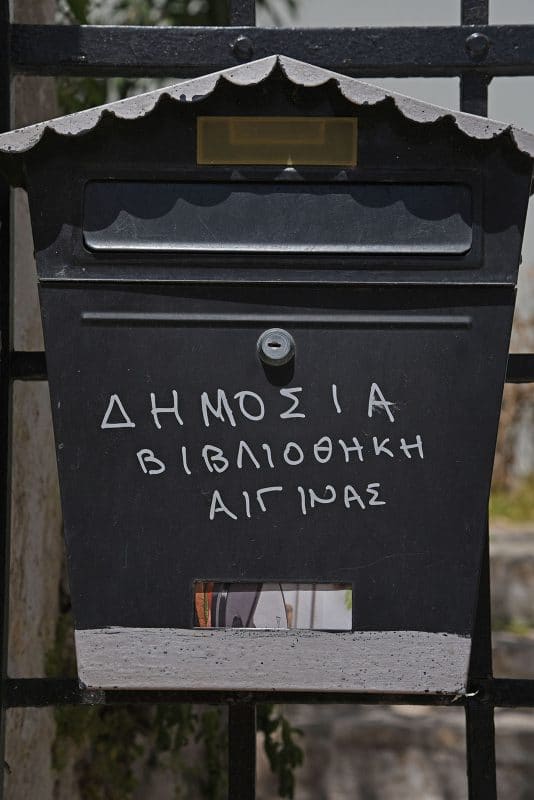 ΔΗΜΟΣΙΑ
ΒΙΒΛΙΟΘΗΚΗ
ΑΙΓΙΝΑΣ